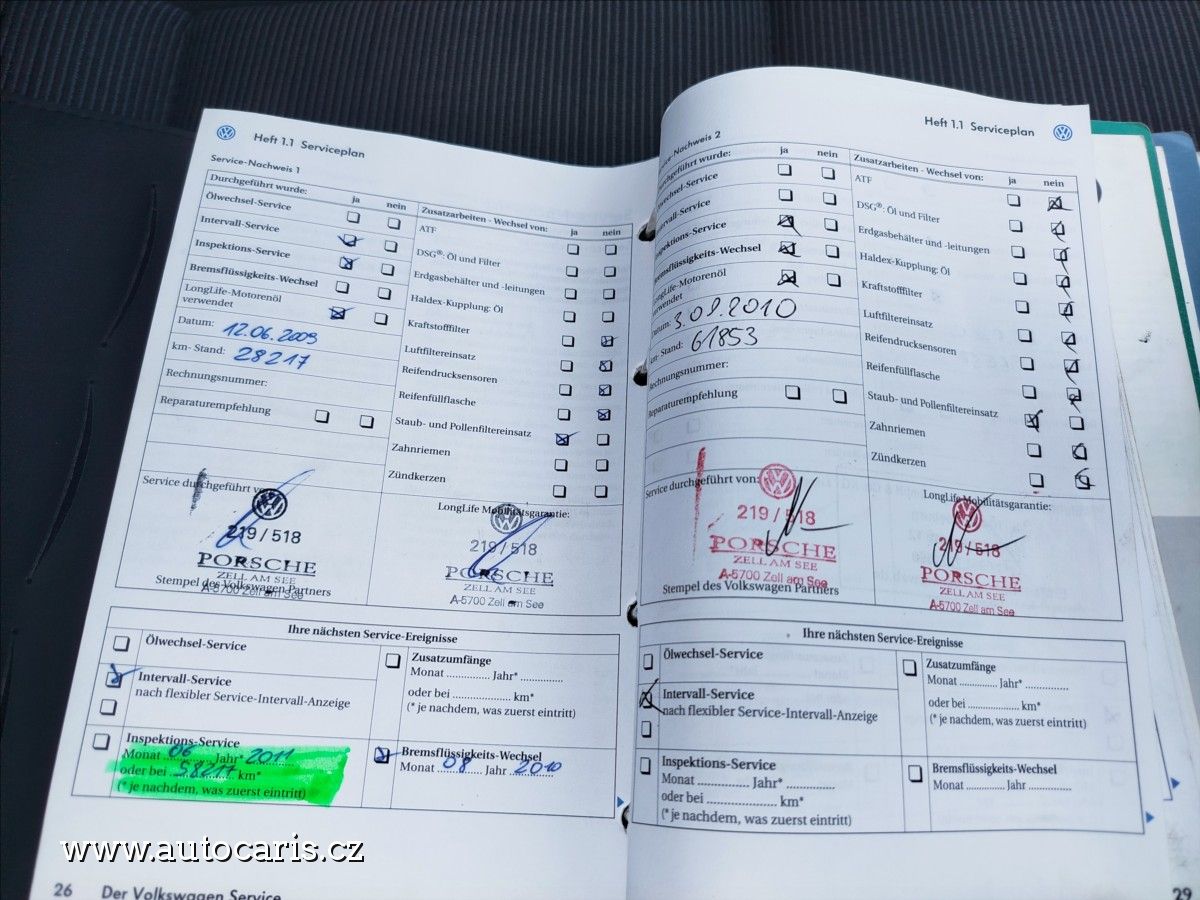 Heft 1.1 Serviceplan
Service-Nachweis 1
Durchgeführt wurde: ja nein
Ölwechsel-Service
Intervall-Service
Inspektions-Service
Bremsflüssigkeits-Wechsel
LongLife-Motorenöl
verwendet
Datum: 12.06.2009
km- Stand: 28217
Rechnungsnummer:
Reparaturempfehlung
Zusatzarbeiten - Wechsel von: ja nein
ATF
DSG®: Öl und Filter
Erdgasbehälter und -leitungen
Haldex-Kupplung: Öl
Kraftstofffilter
Luftfiltereinsatz
Reifendrucksensoren
Reifenfüllflasche
Staub- und Pollenfiltereinsatz
Zahnriemen
Zündkerzen
Service durchgeführt von:
219 / 518
PORSCHE
ZELL AM SEE
A-5700 Zell am See
Stempel des Volkswagen Partners
LongLife Mobilitätsgarantie:
219 / 518
PORSCHE
ZELL AM SEE
A-5700 Zell am See
Ihre nächsten Service-Ereignisse
Ölwechsel-Service
Intervall-Service
nach flexibler Service-Intervall-Anzeige
Inspektions-Service
Monat 06 Jahr* 2011
oder bei 58217 km*
(* je nachdem, was zuerst eintritt)
Zusatzumfänge
Monat .............. Jahr* ..............
oder bei .................... km*
(* je nachdem, was zuerst eintritt)
Bremsflüssigkeits-Wechsel
Monat 08 Jahr 2010
26 Der Volkswagen Service
Heft 1.1 Serviceplan
Service-Nachweis 2
Durchgeführt wurde: ja nein
Ölwechsel-Service
Intervall-Service
Inspektions-Service
Bremsflüssigkeits-Wechsel
LongLife-Motorenöl
verwendet
Datum: 3.08.2010
km- Stand: 61853
Rechnungsnummer:
Reparaturempfehlung
Zusatzarbeiten - Wechsel von: ja nein
ATF
DSG®: Öl und Filter
Erdgasbehälter und -leitungen
Haldex-Kupplung: Öl
Kraftstofffilter
Luftfiltereinsatz
Reifendrucksensoren
Reifenfüllflasche
Staub- und Pollenfiltereinsatz
Zahnriemen
Zündkerzen
Service durchgeführt von:
219 / 518
PORSCHE
ZELL AM SEE
A-5700 Zell am See
Stempel des Volkswagen Partners
LongLife Mobilitätsgarantie:
219 / 518
PORSCHE
ZELL AM SEE
A-5700 Zell am See
Ihre nächsten Service-Ereignisse
Ölwechsel-Service
Intervall-Service
nach flexibler Service-Intervall-Anzeige
Inspektions-Service
Monat .............. Jahr* ..............
oder bei .................... km*
(* je nachdem, was zuerst eintritt)
Zusatzumfänge
Monat .............. Jahr* ..............
oder bei .................... km*
(* je nachdem, was zuerst eintritt)
Bremsflüssigkeits-Wechsel
Monat .............. Jahr ..............
29
www.autocaris.cz